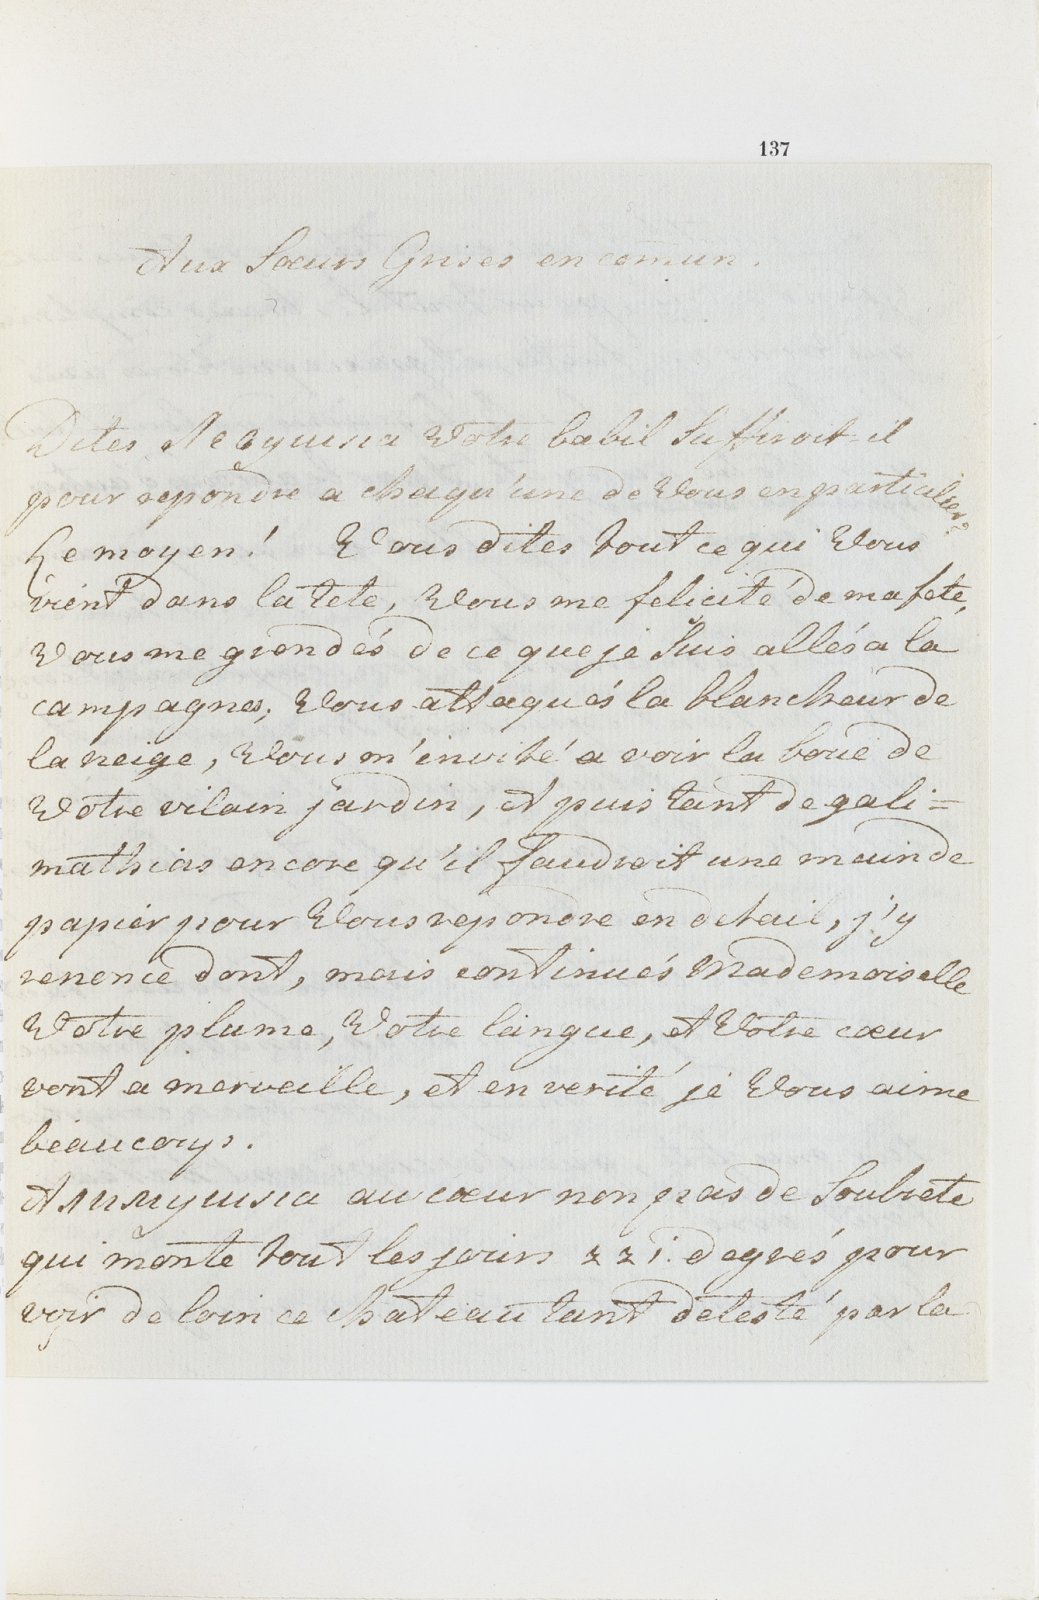 137
Aux Sœurs Grises en comun.
Dites Левушка Votre babil Suffiroit-il
pour repondre a chaqu'une de Vous en particulier?
Le moyen! Vous dites tout ce qui Vous
vient dans la tete, Vous me felicité de ma fete,
Vous me grondés de ce que je Suis allés a la
campagnes, Vous attaqués la blancheur de
la neige, Vous m'invité a voir la boue de
Votre vilain jardin, et puis tant de gali=
mathias encore qu'il faudroit une main de
papier pour Vous repondre en detail, j'y
renence dont, mais continués Mademoiselle
Votre plume, Votre langue, et Votre cœur
vont a merveille, et en verité je Vous aime
beaucoup.
Аннушка au cœur non pas de Soubrete
qui monte tout les jours 221. degrés pour
voir de loin ce chateau tant detesté par la